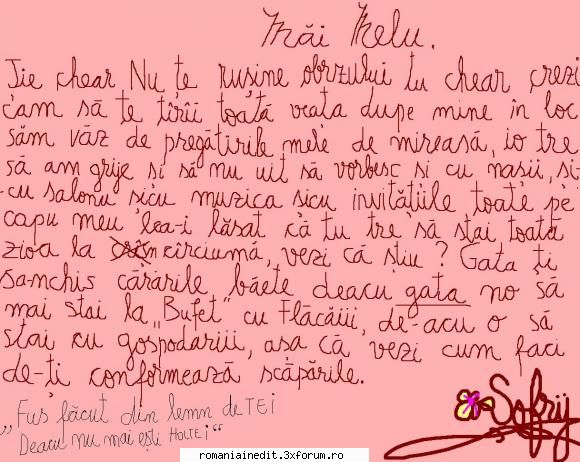 Măi Melu.
Ție chear Nu te rusine obrzului tu chear crezi
c'am să te tîrîi toată veata dupe mine în loc
săm văz de pregătirile mele de mireasă, io tre
să am grije si să nu uit să vorbesc si cu nasii, si
cu salonu sicu muzica sicu invitățiile toate pe
capu meu lea-i lăsat că tu tre să stai toată
zioa la cîrciumă, vezi că știu? Gata ți
sanchis cărările băete deacu gata no să
mai stai la „Bufet" cu Flăcăiii, de-acu o să
stai cu gospodariii, asa că vezi cum faci
de-ți conformează scăpările.
Sofrij
„Fus făcut din lemn de TEI
Deacu nu mai ești HOLTEI"
romaniainedit.3xforum.ro